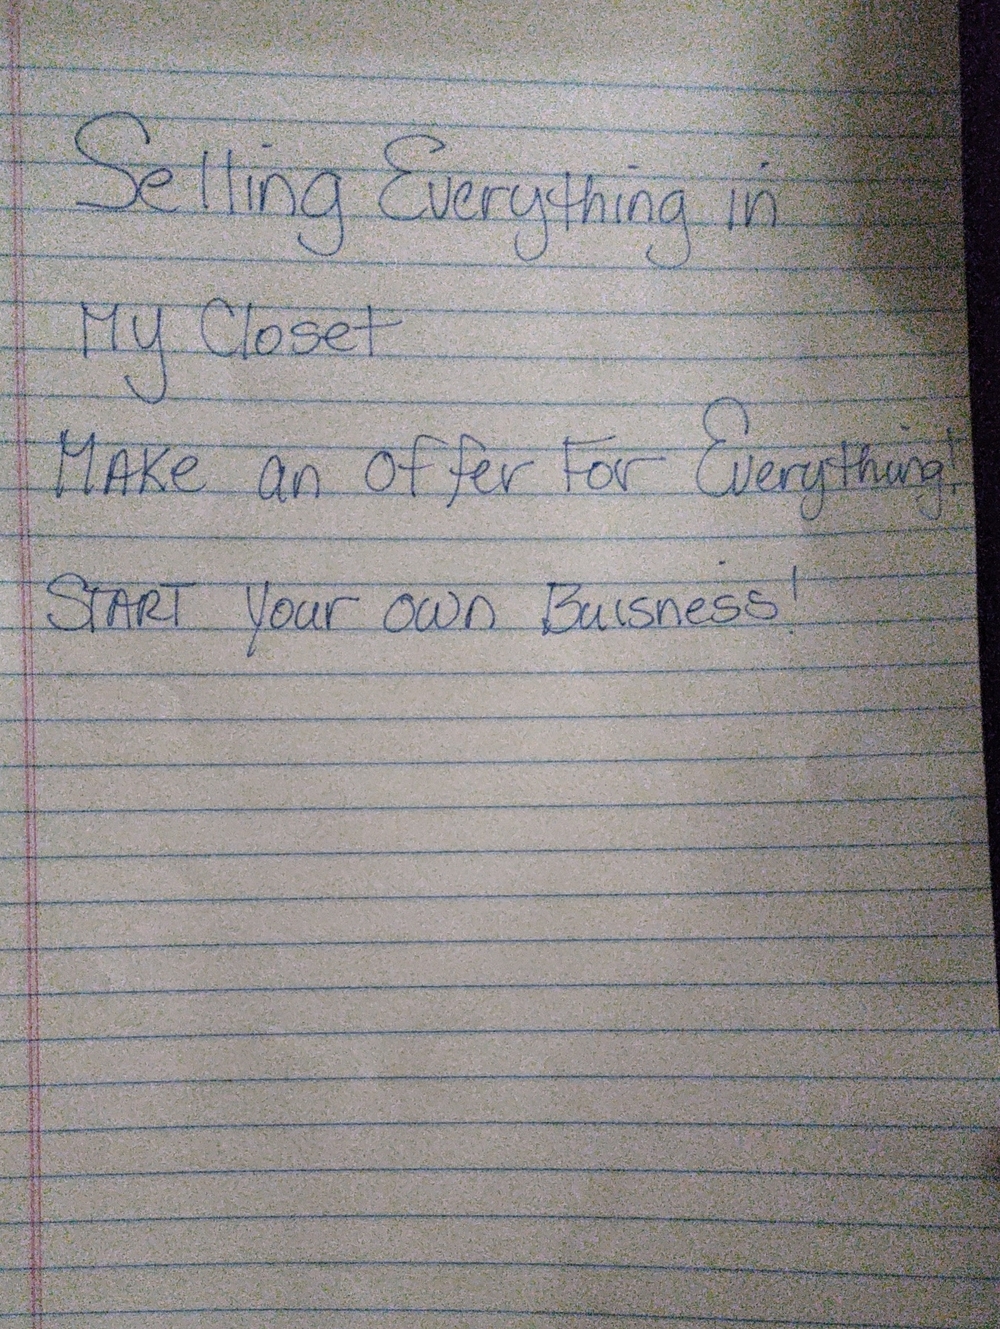 Selling Everything in
My Closet
MAKe an offer For Everything!
START your own Buisness!